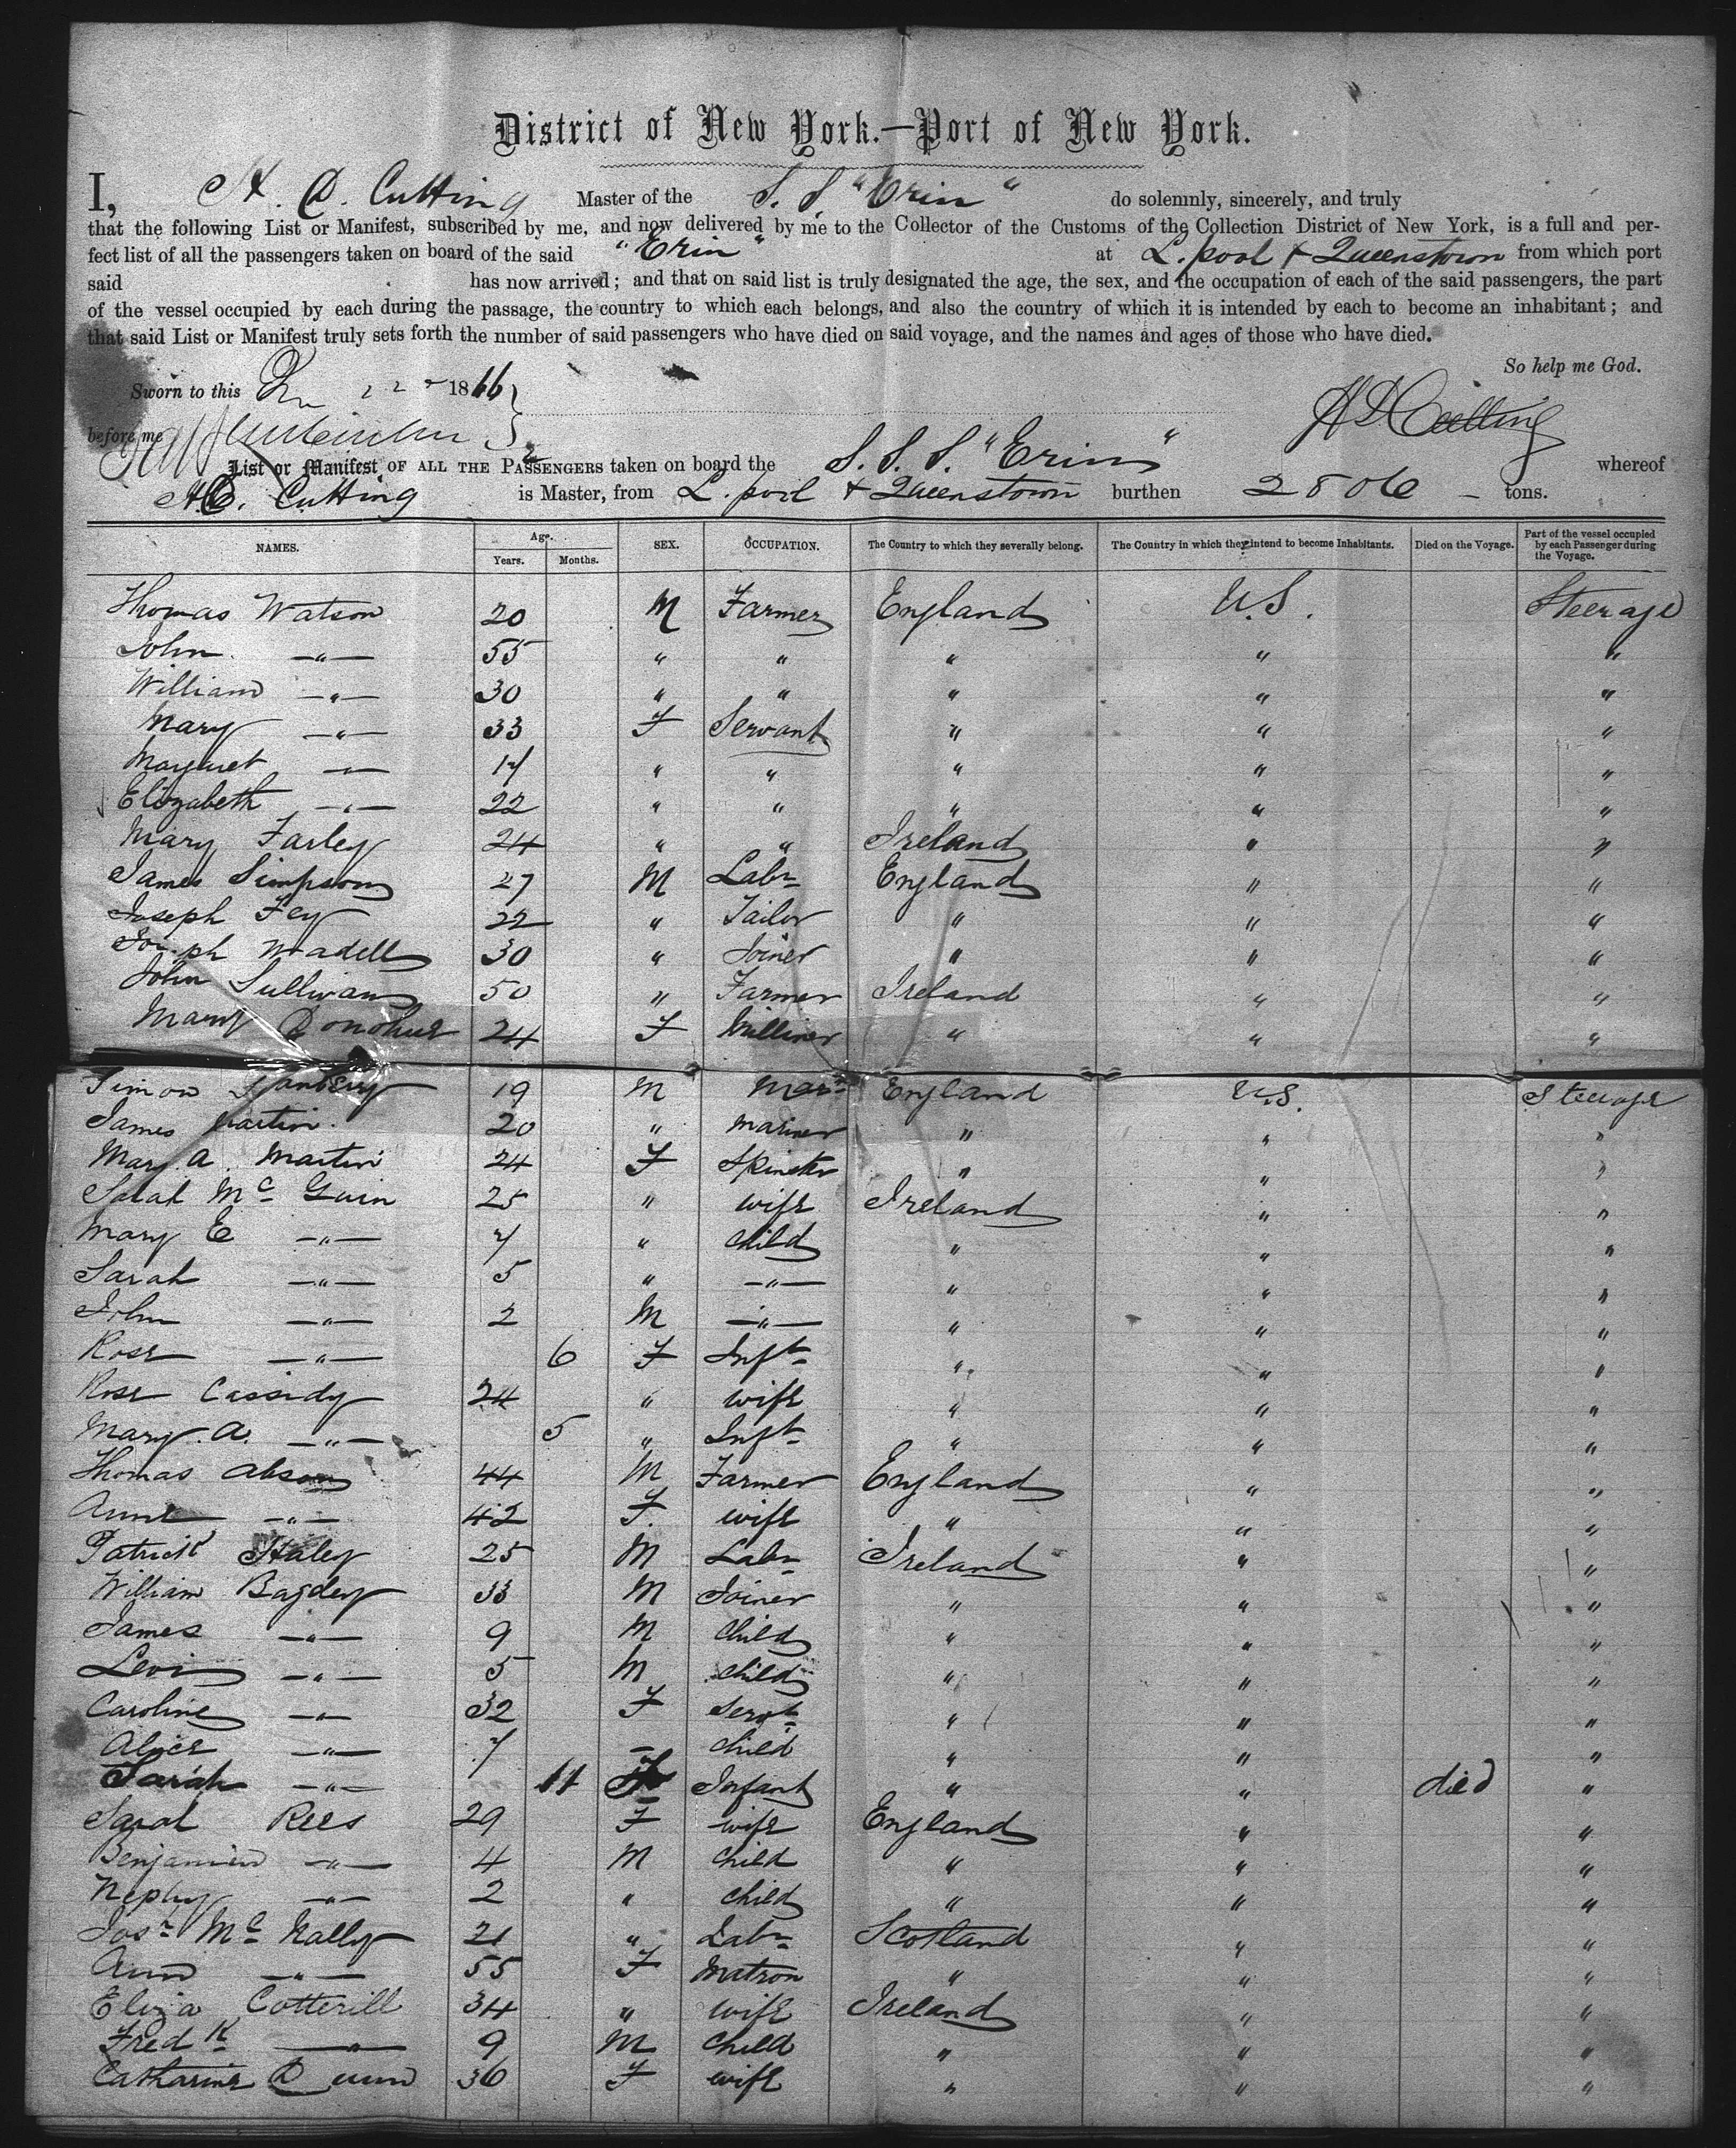 District of New York.—Port of New York.
I, H. D. Cutting Master of the S. S. "Erin" do solemnly, sincerely, and truly
that the following List or Manifest, subscribed by me, and now delivered by me to the Collector of the Customs of the Collection District of New York, is a full and per-
fect list of all the passengers taken on board of the said "Erin" at L.pool & Queenstown from which port
said has now arrived; and that on said list is truly designated the age, the sex, and the occupation of each of the said passengers, the part
of the vessel occupied by each during the passage, the country to which each belongs, and also the country of which it is intended by each to become an inhabitant; and
that said List or Manifest truly sets forth the number of said passengers who have died on said voyage, and the names and ages of those who have died.
So help me God.
Sworn to this 22 1866
before me H D Cutting
List or Manifest OF ALL THE PASSENGERS taken on board the S. S. S. "Erin" whereof
H. Cutting is Master, from L. pool & Queenstown burthen 2806 tons.
NAMES. Age. Years. Months. SEX. OCCUPATION. The Country to which they severally belong. The Country in which they intend to become Inhabitants. Died on the Voyage. Part of the vessel occupied by each Passenger during the Voyage.
Thomas Watson 20 M Farmer England U.S. Steerage
John —"— 55 " " " " "
William —"— 30 " " " " "
Mary —"— 33 F Servant " " "
Margaret —"— 17 " " " " "
Elizabeth —"— 22 " " " " "
Mary Farley 24 " " Ireland " "
James Simpson 27 M Labr England " "
Joseph Fey 22 " Tailor " " "
Joseph Madell 30 " Joiner " " "
John Sullivan 50 " Farmer Ireland " "
Mary Donohue 24 F Milliner " " "
Simon 19 M England U.S. Steerage
James Martin 20 " Mariner " " "
Mary A. Martin 24 F Spinster " " "
Sarah Mc Guin 25 " wife Ireland " "
Mary E —"— 7 " child " " "
Sarah —"— 5 " —"— " " "
John —"— 2 M —"— " " "
Rose —"— 6 F Inft " " "
Rose Cassidy 24 " wife " " "
Mary. A. —"— 5 " Inft " " "
Thomas Abson 44 M Farmer England " "
Anne —"— 42 F. wife " " "
Patrick Haley 25 M Labr Ireland " "
William Bagley 33 M Joiner " " "
James —"— 9 M Child " " "
Levi —"— 5 M child " " "
Caroline —"— 32 F Servt " " "
Alice —"— 7 — child " " "
Sarah —"— 11 F Infant " " died "
Sarah Rees 29 F wife England " "
Benjamin —"— 4 M child " " "
Nephy —"— 2 " child " " "
Josh Mc Nally 21 " Labr Scotland " "
Ann —"— 55 F Matron " " "
Eliza Cotterill 34 " wife Ireland " "
Fredk —"— 9 M child " " "
Catharine Dunn 36 F wife " " "